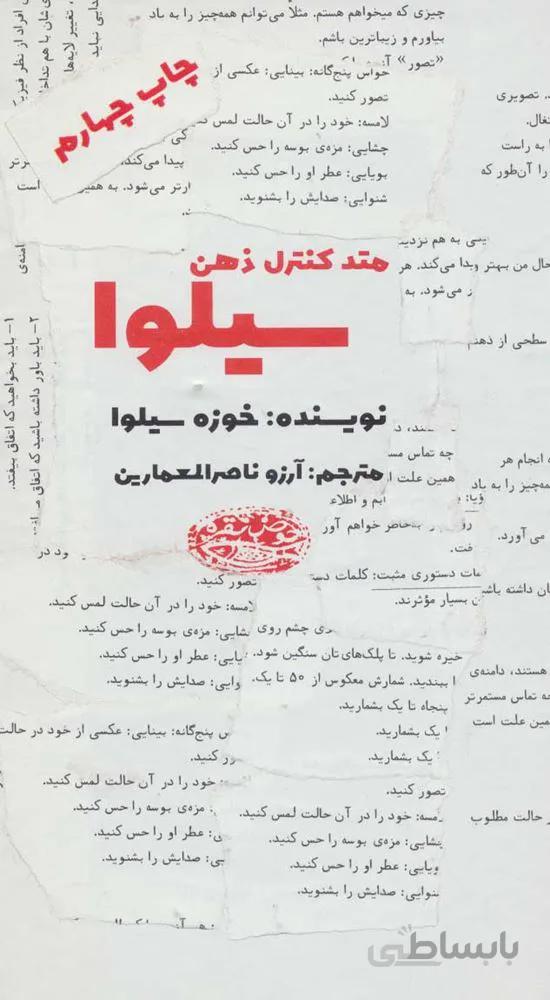 چیزی که میخواهم هستم. مثلاً می‌توانم همه‌چیز را به یاد
بیاورم و زیباترین باشم.
«تصور»
حواس پنج‌گانه: بینایی: عکسی از
تصور کنید.
لامسه: خود را در آن حالت لمس
چشایی: مزه‌ی بوسه را حس کنید.
بویایی: عطر او را حس کنید.
شنوایی: صدایش را بشنوید.
چاپ چهارم
تصویری
به راست
را آن‌طور که
پیدا می‌کند
متد کنترل ذهن
سیلوا
نویسنده: خوزه سیلوا
مترجم: آرزو ناصرالمعمارین
حوض نقره
به هم نزدیک
حال من بهتر
پیدا می‌کند. هر
می‌شود. به
سطحی از ذهن
۱– باید بخواهید که اتفاق بیفتد.
۲– باید باور داشته باشید که اتفاق
چه تماس
همین علت
انجام هر
همه‌چیز را به یاد
خواهم آورد
می آورد.
کلمات دستوری مثبت: کلمات
بسیار مؤثرند.
داشته باشید
تصور کنید.
لامسه: خود را در آن حالت لمس کنید.
چشایی: مزه‌ی بوسه را حس کنید.
بویایی: عطر او را حس کنید.
شنوایی: صدایش را بشنوید.
چشم روی
خیره شوید. تا پلک‌های‌تان سنگین شود.
ببندید. شمارش معکوس از ۵۰ تا یک.
پنجاه تا یک بشمارید.
یک بشمارید.
یک بشمارید.
هستند، دامنه‌ی
تماس مستمرتر
همین علت است
حالت مطلوب
پنج‌گانه: بینایی: عکسی از خود در حالت
کنید.
خود را در آن حالت لمس کنید.
مزه‌ی بوسه را حس کنید.
عطر او را حس کنید.
صدایش را بشنوید.
تصور کنید.
لامسه: خود را در آن حالت لمس کنید.
چشایی: مزه‌ی بوسه را حس کنید.
بویایی: عطر او را حس کنید.
شنوایی: صدایش را بشنوید.
بابساطی